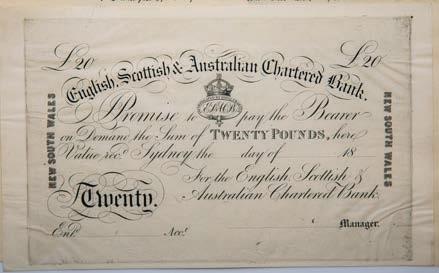 £20 £20
English, Scottish & Australian Chartered Bank.
I Promise to pay the Bearer
on Demand the Sum of TWENTY POUNDS, here
Value recd. Sydney the day of 18
For the English, Scottish &
Twenty. Australian Chartered Bank.
Entd. Acct. Manager.
NEW SOUTH WALES
NEW SOUTH WALES